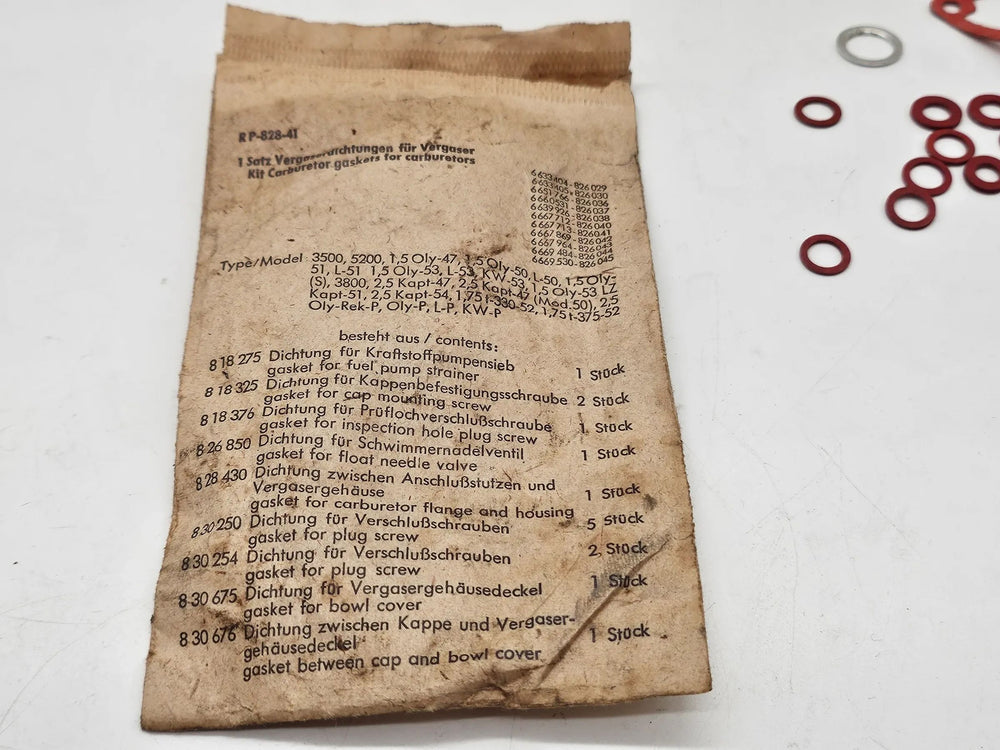 RP-828-41
1 Satz Vergaserdichtungen für Vergaser
Kit Carburetor gaskets for carburetors
6633404-826029
6633405-826030
6651766-826036
6660531-826037
6639926-826038
6667712-826040
6667713-826041
6667869-826042
6667964-826043
6669484-826044
6669530-826045
Type/Model: 3500, 5200, 1,5 Oly-47, 1,5 Oly-50, L-50, 1,5 Oly-
51, L-51 1,5 Oly-53, L-53, KW-53, 1,5 Oly-53 LZ
(S), 3800, 2,5 Kapt-47, 2,5 Kapt-47 (Mod.50), 2,5
Kapt-51, 2,5 Kapt-54, 1,75 t-330-52, 1,75 t-375-52
Oly-Rek-P, Oly-P, L-P, KW-P
besteht aus / contents:
8 18 275 Dichtung für Kraftstoffpumpensieb
gasket for fuel pump strainer 1 Stück
8 18 325 Dichtung für Kappenbefestigungsschraube 2 Stück
gasket for cap mounting screw
8 18 376 Dichtung für Prüflochverschlußschraube 1 Stück
gasket for inspection hole plug screw
8 26 850 Dichtung für Schwimmernadelventil 1 Stück
gasket for float needle valve
8 28 430 Dichtung zwischen Anschlußstutzen und
Vergasergehäuse 1 Stück
gasket for carburetor flange and housing
8 30 250 Dichtung für Verschlußschrauben 5 Stück
gasket for plug screw
8 30 254 Dichtung für Verschlußschrauben 2 Stück
gasket for plug screw
8 30 675 Dichtung für Vergasergehäusedeckel 1 Stück
gasket for bowl cover
8 30 676 Dichtung zwischen Kappe und Vergaser-
gehäusedeckel 1 Stück
gasket between cap and bowl cover